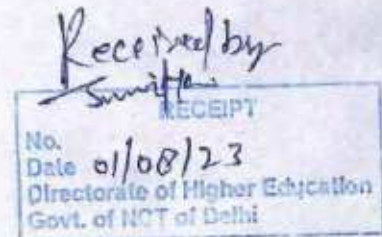 Received by
RECEIPT
No.
Date 01/08/23
Directorate of Higher Education
Govt. of NCT of Delhi